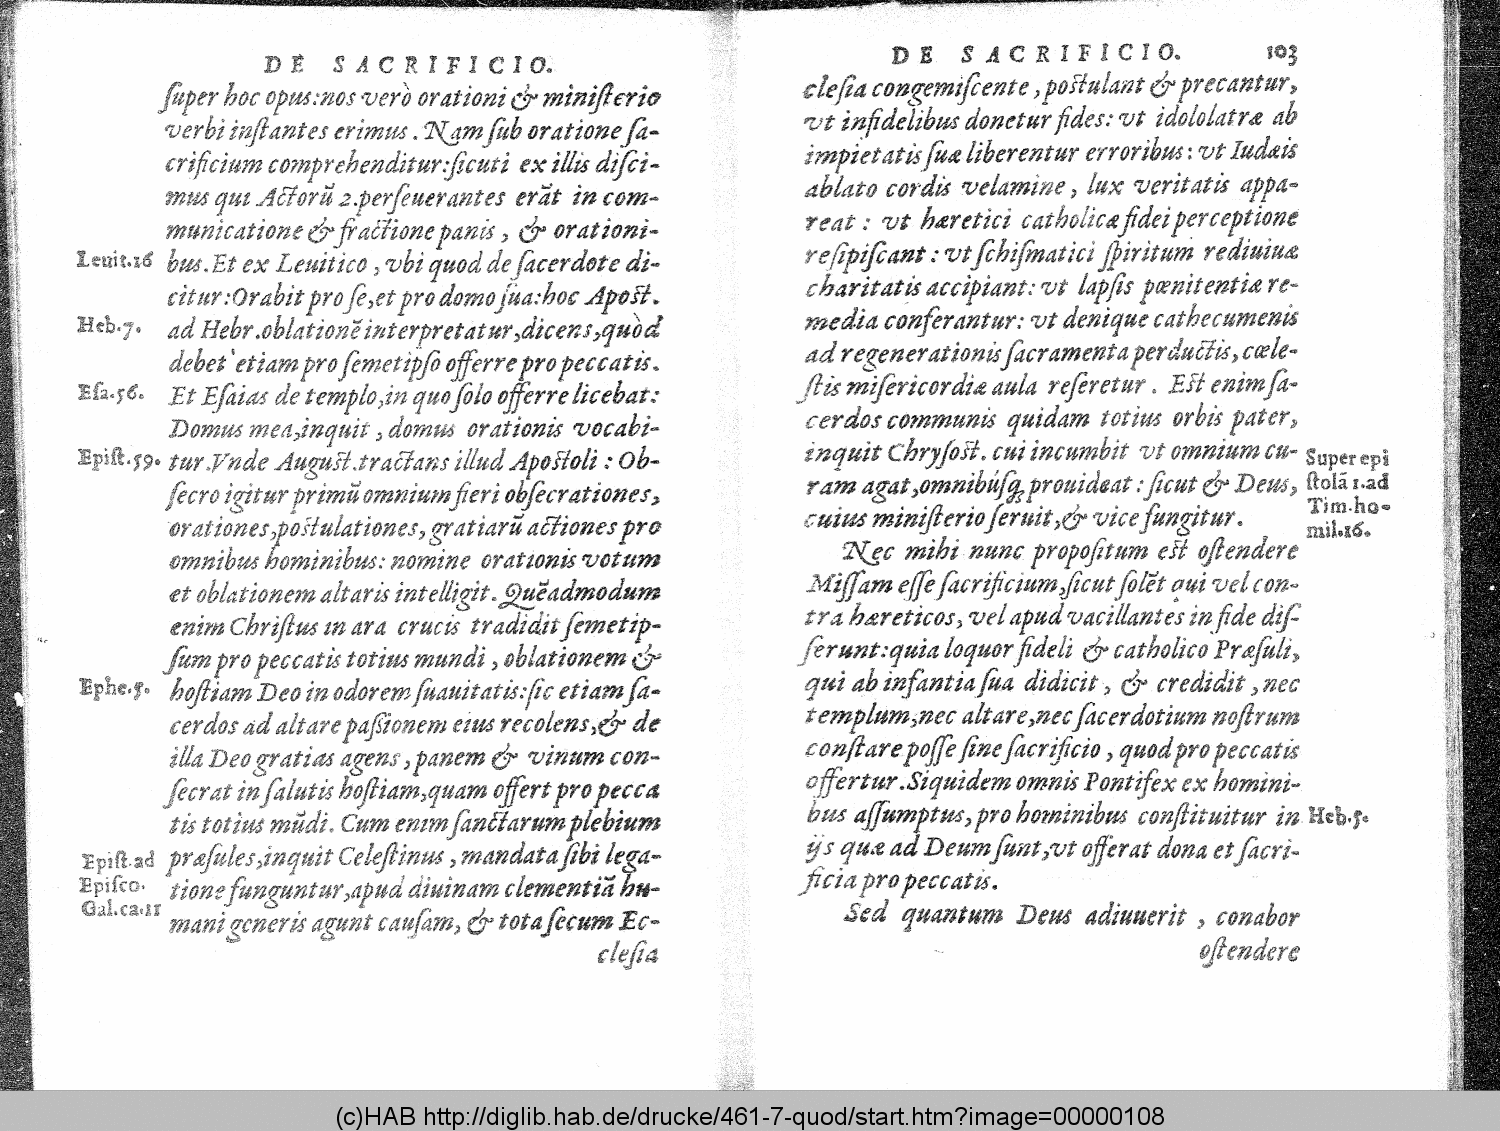 DE SACRIFICIO.
ſuper hoc opus:nos verò orationi & miniſterio
verbi inſtantes erimus. Nam ſub oratione ſa-
crificium comprehenditur:ſicuti ex illis diſci-
mus qui Actorū 2.perſeuerantes erāt in com-
municatione & fractione panis, & orationi-
Leuit.16
bus.Et ex Leuitico, vbi quod de ſacerdote di-
citur:Orabit pro ſe,et pro domo ſua:hoc Apoſt.
Heb.7.
ad Hebr.oblationē interpretatur,dicens,quòd
debet etiam pro ſemetipſo offerre pro peccatis.
Eſa.56.
Et Eſaias de templo,in quo ſolo offerre licebat:
Domus mea,inquit, domus orationis vocabi-
Epiſt.59.
tur.Vnde Auguſt.tractans illud Apoſtoli: Ob-
ſecro igitur primū omnium fieri obſecrationes,
orationes,poſtulationes,gratiarū actiones pro
omnibus hominibus: nomine orationis votum
et oblationem altaris intelligit. Quēadmodum
enim Chriſtus in ara crucis tradidit ſemetip-
ſum pro peccatis totius mundi, oblationem &
Ephe.5.
hoſtiam Deo in odorem ſuauitatis:ſic etiam ſa-
cerdos ad altare paſsionem eius recolens,& de
illa Deo gratias agens, panem & vinum con-
ſecrat in ſalutis hoſtiam,quam offert pro pecca
tis totius mūdi. Cum enim ſanctarum plebium
Epiſt.ad
Epiſco.
Gal.ca.11
præſules,inquit Celeſtinus, mandata ſibi lega-
tione funguntur,apud diuinam clementiā hu-
mani generis agunt cauſam, & tota ſecum Ec-
cleſia
DE SACRIFICIO. 103
cleſia congemiſcente, poſtulant & precantur,
vt infidelibus donetur fides: vt idololatræ ab
impietatis ſuæ liberentur erroribus: vt Iudæis
ablato cordis velamine, lux veritatis appa-
reat: vt hæretici catholicæ fidei perceptione
reſipiſcant: vt ſchiſmatici ſpiritum rediuiuæ
charitatis accipiant: vt lapſis pœnitentiæ re-
media conferantur: vt denique cathecumenis
ad regenerationis ſacramenta perductis, cœle-
ſtis miſericordiæ aula reſeretur. Eſt enim ſa-
cerdos communis quidam totius orbis pater,
inquit Chryſoſt. cui incumbit vt omnium cu-
ram agat,omnibúſq; prouideat: ſicut & Deus,
cuius miniſterio ſeruit,& vice fungitur.
Super epi
ſtolā 1.ad
Tim.ho-
mil.16.
Nec mihi nunc propoſitum eſt oſtendere
Miſſam eſſe ſacrificium,ſicut ſolēt qui vel con-
tra hæreticos, vel apud vacillantes in fide diſ-
ſerunt:quia loquor fideli & catholico Præſuli,
qui ab infantia ſua didicit, & credidit, nec
templum,nec altare,nec ſacerdotium noſtrum
conſtare poſſe ſine ſacrificio, quod pro peccatis
offertur.Siquidem omnis Pontifex ex homini-
bus aſſumptus, pro hominibus conſtituitur in
Heb.5.
ijs quæ ad Deum ſunt,vt offerat dona et ſacri-
ficia pro peccatis.
Sed quantum Deus adiuuerit, conabor
oſtendere
(c)HAB http://diglib.hab.de/drucke/461-7-quod/start.htm?image=00000108